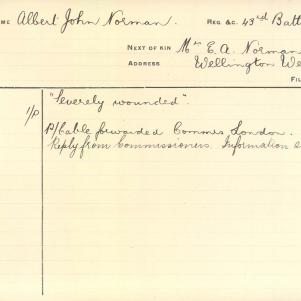 ME Albert John Norman. REG &C. 43rd Batt
NEXT OF KIN Mrs E. A. Norman
ADDRESS Wellington We
FIL
"Severely wounded".
1/P
P/Cable forwarded Commis London.
Reply from Commissioners. Information s